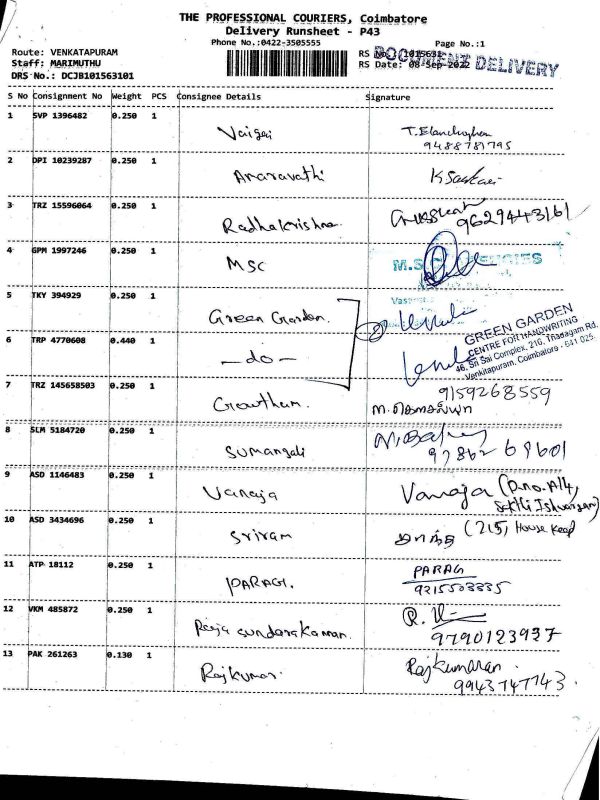 THE PROFESSIONAL COURIERS, Coimbatore
Delivery Runsheet - P43
Phone No.:0422-3505555
Page No.:1
Route: VENKATAPURAM
RS No.: 1015631
DOCUMENT DELIVERY
Staff: MARIMUTHU
RS Date: 08-Sep-2022
DRS No.: DCJB101563101
S No Consignment No Weight PCS Consignee Details Signature
1 SVP 1396482 0.250 1
Vaigai T. Elanchezhan
9488781795
2 DPI 10239287 0.250 1
Amaravathi K Sasikai
3 TRZ 15596064 0.250 1
Radhakrishna 9629443161
4 GPM 1997246 0.250 1
MSC M.S.
5 TKY 394929 0.250 1
Green Garden.
6 TRP 4770608 0.440 1
-do-
GREEN GARDEN
CENTRE FOR HANDWRITING
46, Sri Sai Complex, 216, Thadagam Rd,
Venkitapuram, Coimbatore - 641 025.
7 TRZ 145658503 0.250 1
9159268559
Gowtham.
8 SLM 5184720 0.250 1
Sumangali 97862 69601
9 ASD 1146483 0.250 1
Vanaja Vanaja (D.no. A14,
Sakthi Ishwaryam)
10 ASD 3434696 0.250 1
Sriram (215, House Keep
11 ATP 18112 0.250 1
PARAG. PARAG
9215503335
12 VKM 485872 0.250 1
Raja Sundarakannan. R.
9790123937
13 PAK 261263 0.130 1
Rajkumar. Rajkumaran.
9943747743.